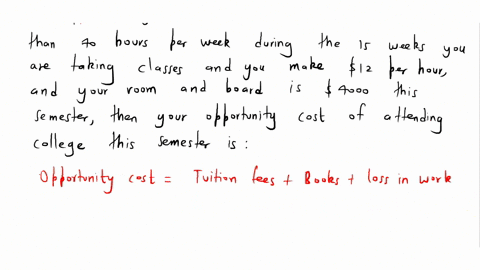 than 40 hours per week during the 15 weeks you
are taking classes and you make $12 per hour,
and your room and board is $4000 this
semester, then your opportunity cost of attending
college this semester is :
Opportunity cost = Tuition fees + Books + loss in work